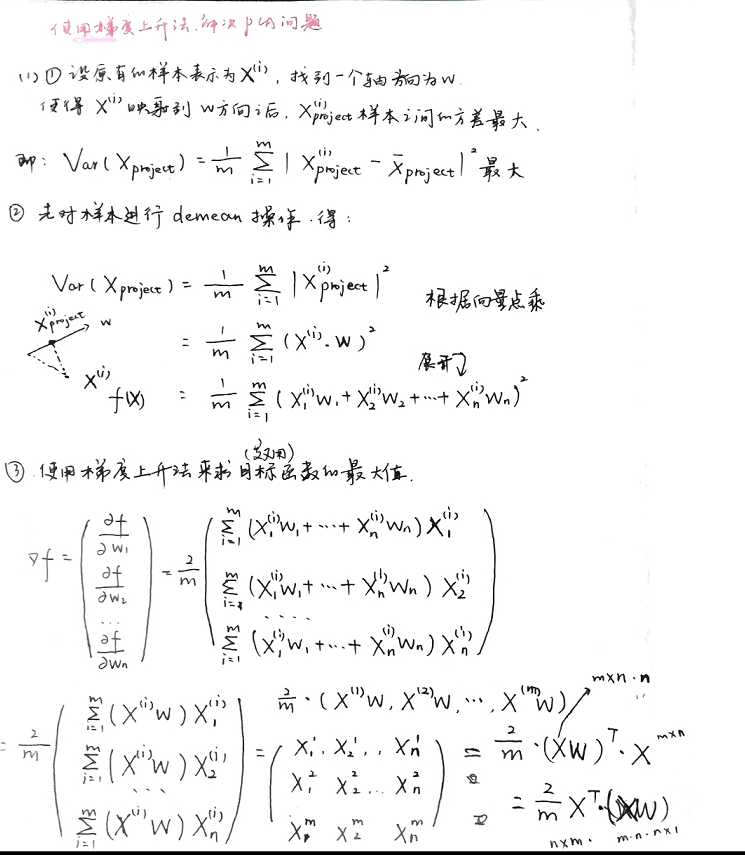 使用梯度上升法,解决pca问题
(1) ① 设原有的样本表示为X⁽ⁱ⁾, 找到一个轴方向为w.
使得 X⁽ⁱ⁾ 映射到 w方向之后, X⁽ⁱ⁾project 样本之间的方差最大.
即: Var(Xproject) = 1/m Σᵢ₌₁ᵐ | X⁽ⁱ⁾project - X̄project |² 最大
② 先对样本进行 demean 操作, 得:
Var(Xproject) = 1/m Σᵢ₌₁ᵐ | X⁽ⁱ⁾project |²
根据向量点乘
X⁽ⁱ⁾project w
= 1/m Σᵢ₌₁ᵐ (X⁽ⁱ⁾·w)²
展开
X⁽ⁱ⁾
f(X) = 1/m Σᵢ₌₁ᵐ (X₁⁽ⁱ⁾w₁ + X₂⁽ⁱ⁾w₂ + ··· + Xₙ⁽ⁱ⁾wₙ)²
(效用)
③ 使用梯度上升法来求目标函数的最大值.
∇f = ( ∂f/∂w₁ ∂f/∂w₂ ... ∂f/∂wₙ ) = 2/m ( Σᵢ₌₁ᵐ (X₁⁽ⁱ⁾w₁ + ··· + Xₙ⁽ⁱ⁾wₙ) X₁⁽ⁱ⁾
Σᵢ₌₁ᵐ (X₁⁽ⁱ⁾w₁ + ··· + Xₙ⁽ⁱ⁾wₙ) X₂⁽ⁱ⁾
....
Σᵢ₌₁ᵐ (X₁⁽ⁱ⁾w₁ + ··· + Xₙ⁽ⁱ⁾wₙ) Xₙ⁽ⁱ⁾ )
= 2/m ( Σᵢ₌₁ᵐ (X⁽ⁱ⁾w) X₁⁽ⁱ⁾
Σᵢ₌₁ᵐ (X⁽ⁱ⁾w) X₂⁽ⁱ⁾
...
Σᵢ₌₁ᵐ (X⁽ⁱ⁾w) Xₙ⁽ⁱ⁾ )
2/m · (X⁽¹⁾w, X⁽²⁾w, ···, X⁽ᵐ⁾w)
= ( X₁¹, X₂¹, .. Xₙ¹
X₁² X₂² ... Xₙ²
X₁ᵐ X₂ᵐ Xₙᵐ )
m×n·n
= 2/m · (Xw)ᵀ · X m×n
= 2/m Xᵀ·(Xw)
n×m · m·n·n×1